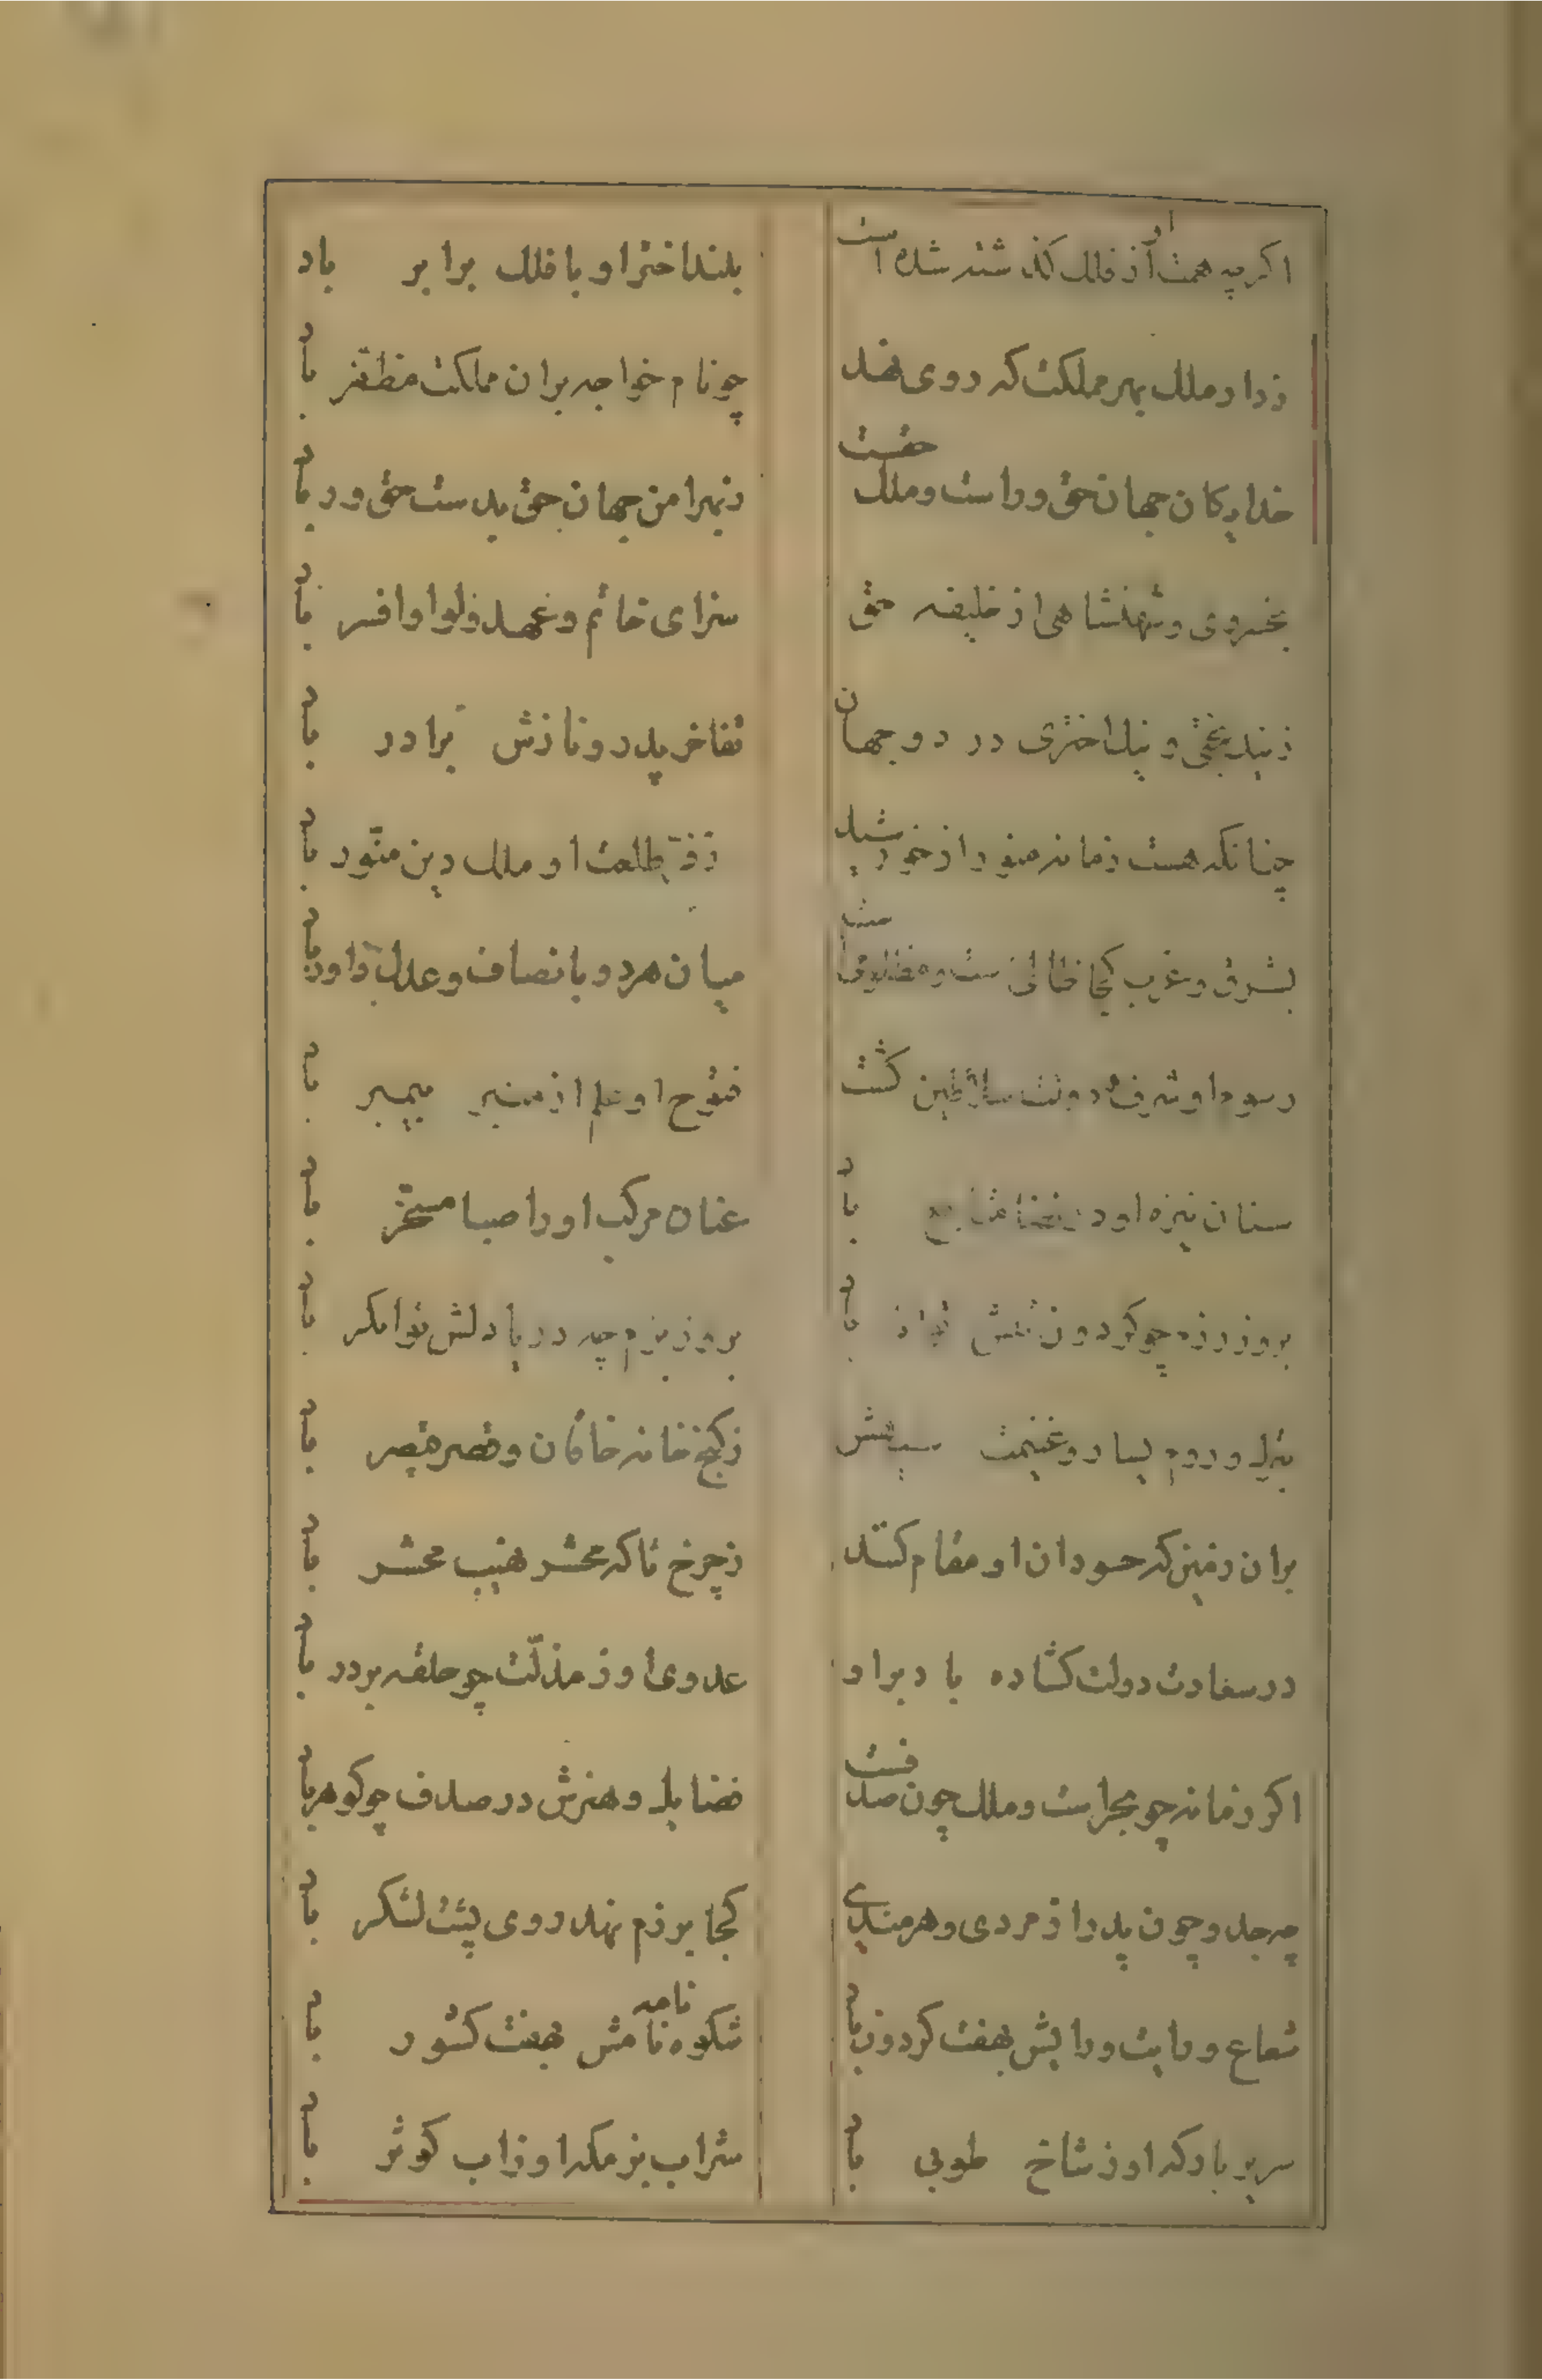 اگرچه همت او از فلک گذشته شده است
بلند اختر او با فلک برابر باد
ز داد ملک بهر مملکت که روی نهد
چو نام خواجه بران مملکت مظفر باد
خدایکان جهان حق وراست و ملک حقست
زبهر امن جهان حق بدست حق ور باد
بخسروی و شهنشاهی از خلیفه حق
سزای خاتم و عهد و لوا و افسر باد
ز نیک بختی و نیک اختری در دو جهان
تفاخر پدر و نازش برادر باد
چنانکه هست زمانه منور از خورشید
ز فر طلعت او ملک دین منور باد
بشرق و غرب کجا ظالمی است و مظلومیست
میان هر دو بانصاف و عدل داور باد
رسوم او شرف دولت سلاطین گشت
فتوح او علم از منبر پیمبر باد
سنان نیزه او را قضا متابع باد
عنان مرکب او را صبا مسخر باد
بروز رزم چو گردون تنش توان باد
بروز بزم چه دریا دلش توانگر باد
بترک و روم بسیار و غنیمت سپهش
ز گنج خانه خاقان و قصر قیصر باد
بران زمین که حسودان او مقام کنند
ز چرخ تا که محشر نهیب محشر باد
در سعادت دولت گشاده باد برو
عدوی او ز مذلت چو حلقه بر در باد
اگر زمانه چو بحرست و ملک چون صدفست
فضایل و هنرش در صدف چو گوهر باد
چه جد و چون پدر از مردی و هرمندی
کجا برزم نهد روی پشت لشکر باد
شعاع و رایت و رایش بهفت گردون باد
شکوه نامه نامش بهفت کشور باد
سریر بادکه او ز شاخ طوبی باد
شراب بزمکه او ز اب کوثر باد